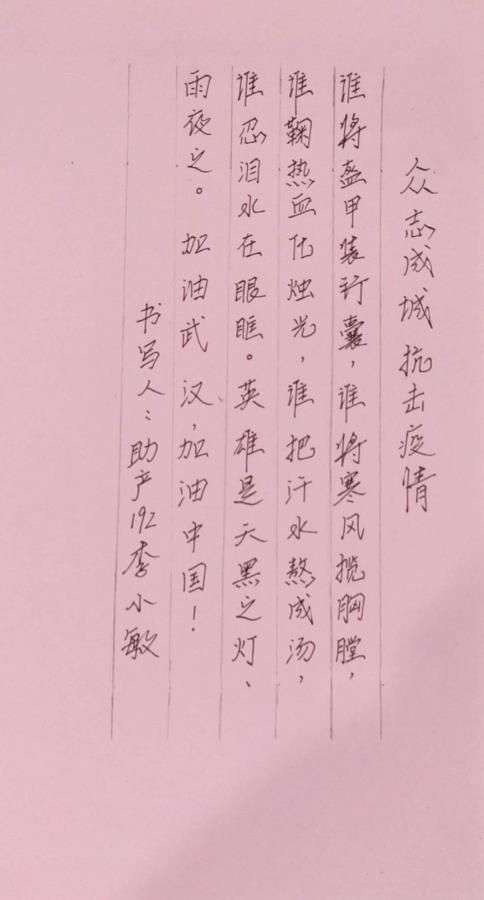 众志成城抗击疫情
谁将盔甲装行囊，谁将寒风揽胸膛，
谁鞠热血化烛光，谁把汗水熬成汤，
谁忍泪水在眼眶。英雄是天黑之灯、
雨夜之。加油武汉，加油中国！
书写人：助产192李小敏